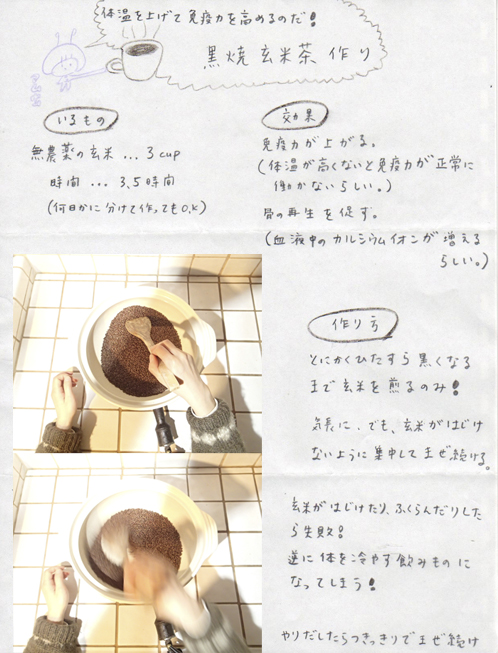 体温を上げて免疫力を高めるのだ！
黒焼玄米茶作り
いるもの
無農薬の玄米 … 3 cup
時間 … 3.5時間
(何日かに分けて作ってもO.K)
効果
免疫力が上がる。
(体温が高くないと免疫力が正常に
働かないらしい。)
骨の再生を促す。
(血液中のカルシウムイオンが増える
らしい。)
作り方
とにかくひたすら黒くなる
まで玄米を煎るのみ！
気長に．でも、玄米がはじけ
ないように集中してまぜ続ける。
玄米がはじけたり、ふくらんだりした
ら失敗！
逆に体を冷やす飲みものに
なってしまう！
やりだしたらつきっきりでまぜ続け